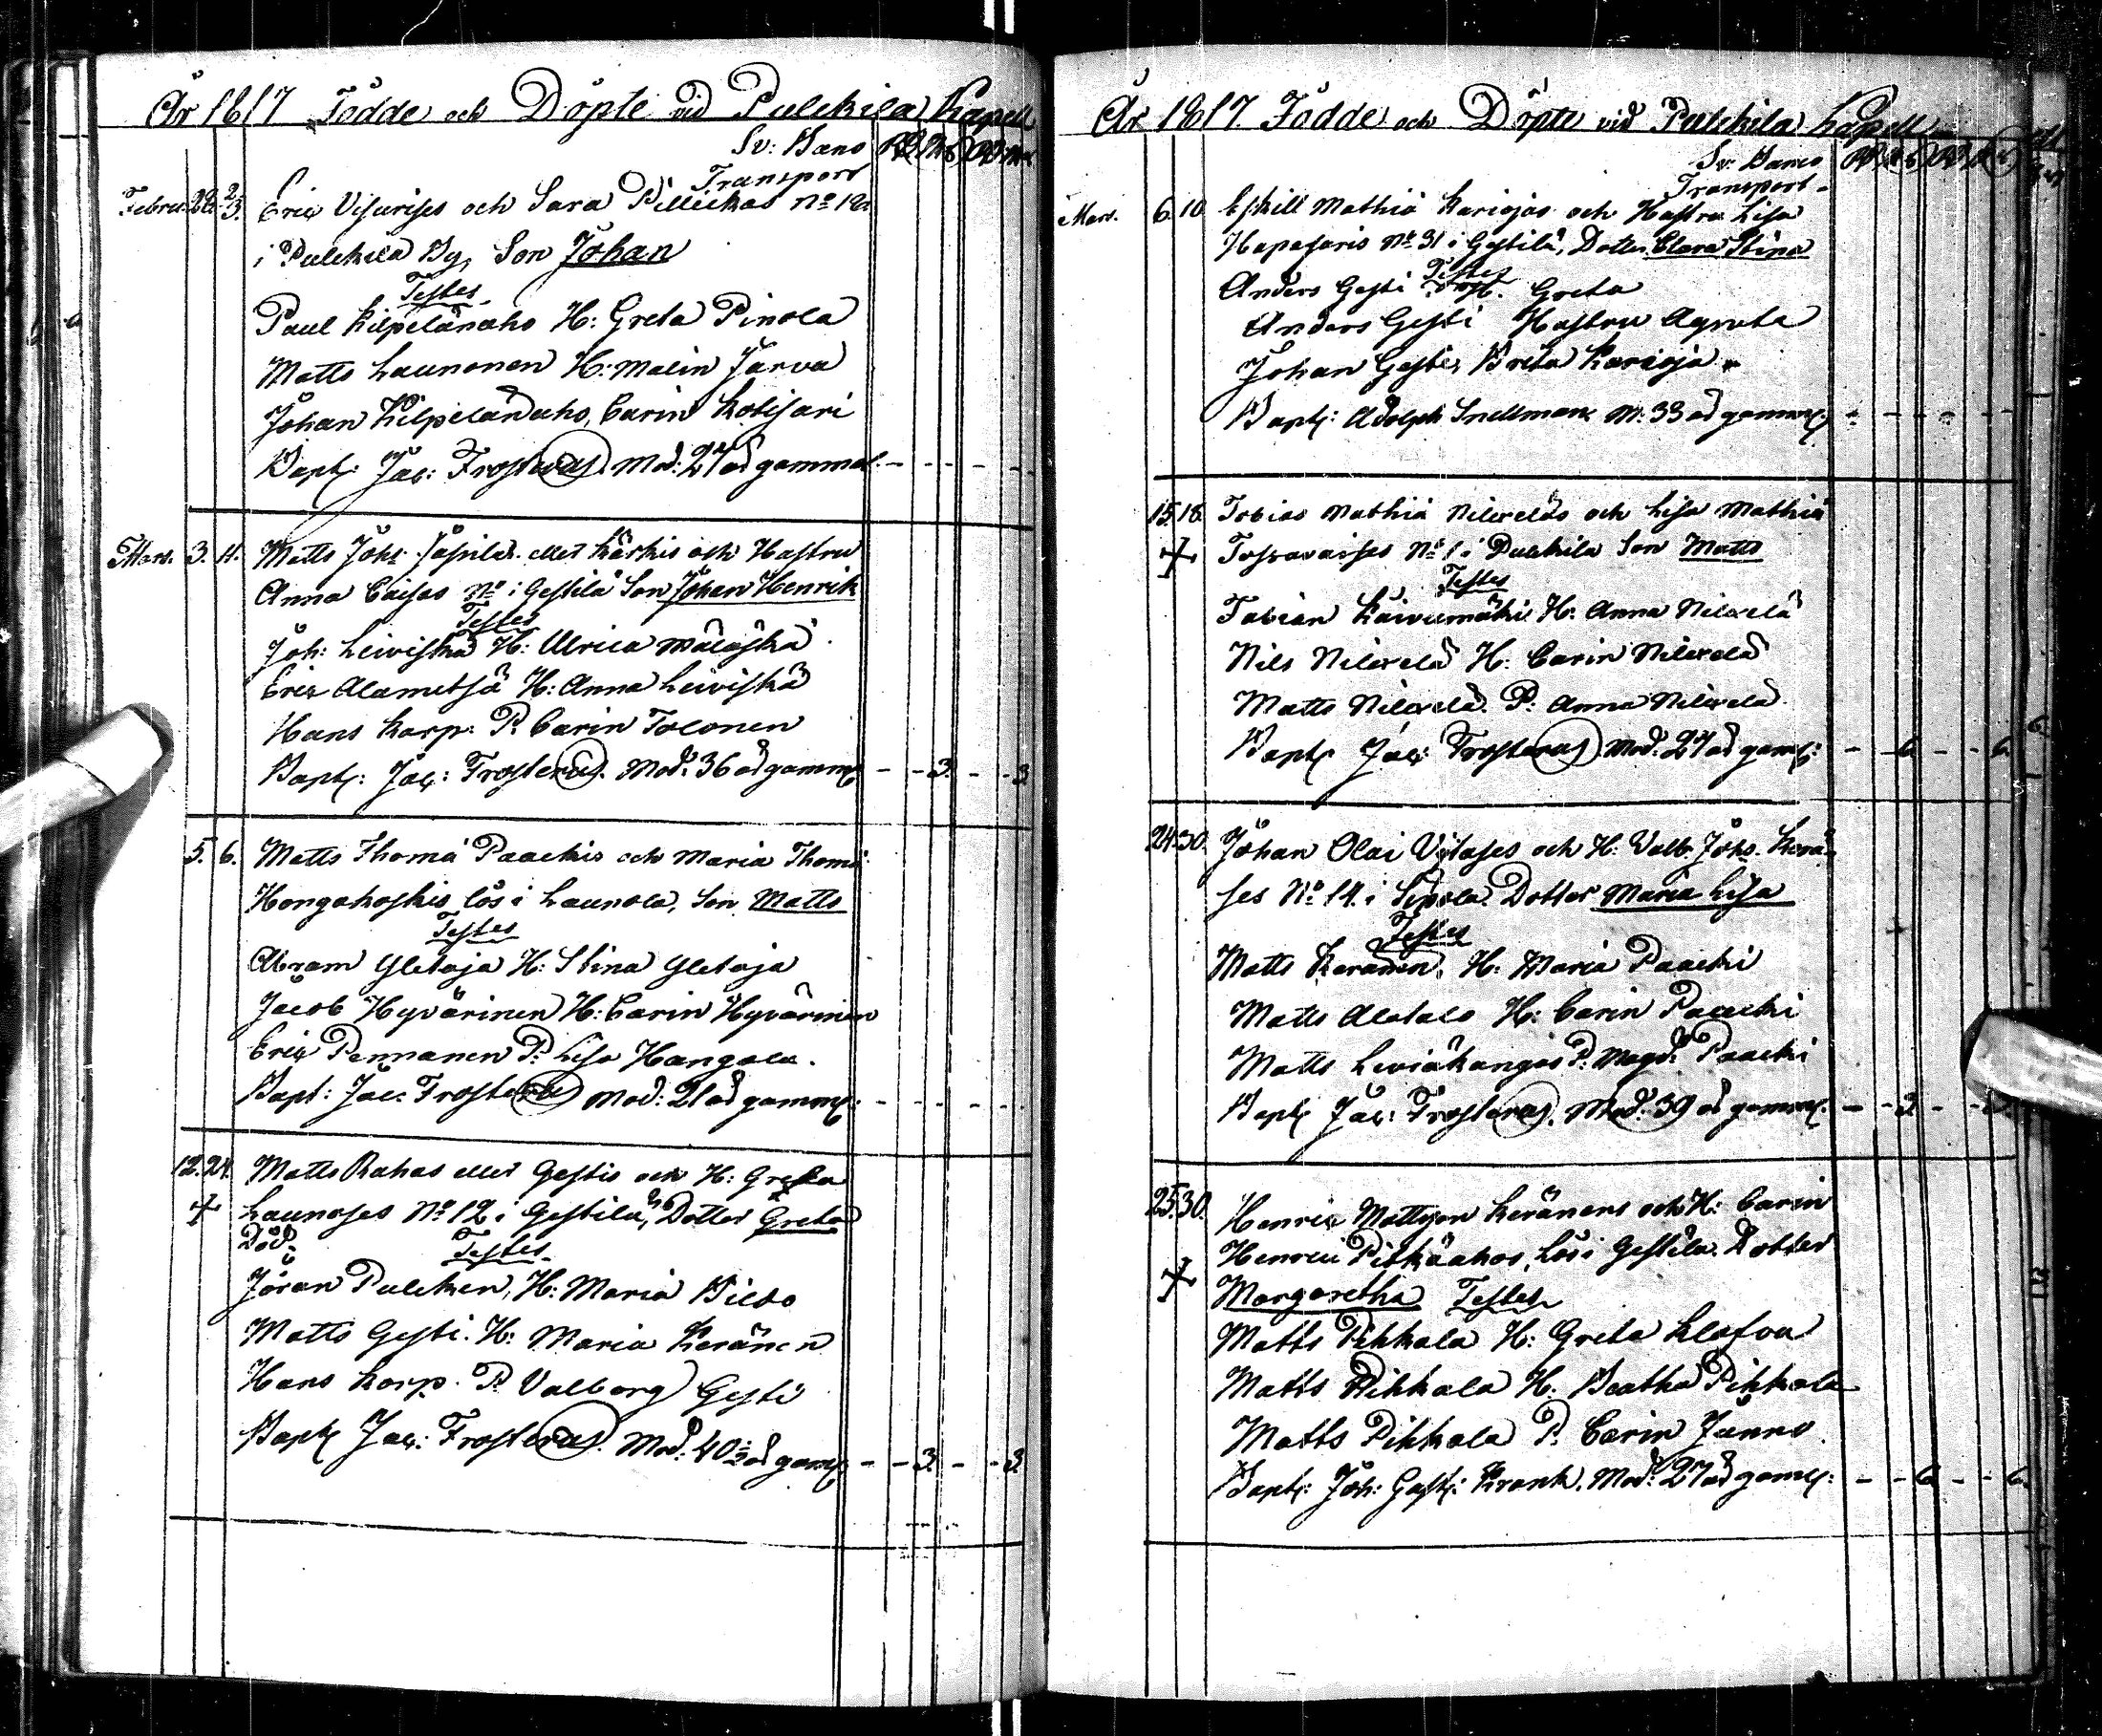 År 1817 Födde och Döpte vid Pulckila Kapell
Sv: Banco
Transport
Febru. 28. 2/3. Eric Visurises och Sara Pilleickas No 12
i Pulckila By, Son Johan
Testes
Paul Kilpelänaho H: Greta Pinola
Matts Launonen H: Malin Järva
Johan Kilpelänaho, Carin Kotisari
Bapt: Jac: Frosterus. Mod: 27 åd gammal. - - - - -
Mart. 3. 4. Matts Johs eller Kärkis och Hustru
Anna Caisas No i Gestilä Son Johan Henrik
Testes
Joh: Leiviskä H: Ulrica Mälaskä
Eric Alametsä H: Anna Leiviskä
Hans Karp. P. Carin Tolonen
Bapt: Jac: Frosterus. Mod: 36 åd gamml - - 3. - - 3
5. 6. Matts Thomä Paackis och Maria Thomä
Hongakoskis lös i Launola, Son Matts
Testes
Abram Yletaja H: Stina Yletaja
Jacob Hyvärinen H: Carin Hyvärinen
Eric Pennanen P: Lisa Hangala.
Bapt: Jac: Frosterus Mod: 21 åd gamml: - - - - -
12. 24. Matts Rahas eller Gestis och H: Greta
+ Launoses No 12 i Gestilä, Dotter Greta
Död.
Testes
Jöran Pulcken, H: Maria
Matts Gesti. H: Maria Keränen
Hans Korp. P. Valborg Gesti
Bapt Jac: Frosterus. Mod: 40 åd gaml - - 3. - - 3.
År 1817. Födde och Döpte vid Pulckila Kapell
Sv: Banco
Transport -
Mart. 6. 10. Eskill Mathiä Kariojas och Hustru Lisa
Hapasaris No 31 i Gestilä, Dotter Clara Stina
Testes
Anders Gesti Hust. Greta
Anders Gesti Hustru Agneta
Johan Gesti, Brita Karioja
Bapt: Adolph Snellman M: 33 åd gamml: - - - - -
15. 18. Tobias Mathiä Niliveläs och Lisa Mathiä
+ No 1 i Pulckila Son Matts
Testes
Fabian Kaivumäki H: Anna Nilivelä
Nils Nilivelä H: Carin Nilivelä
Matts Nilivelä P: Anna Nilivelä
Bapt Jac: Frosterus Mod: 27 åd gaml: - - 6. - - 6.
24. 30. Johan Olai Vitases och H: Valb. Johs. Kerä-
ses No 14. i Sipola. Dotter Maria Lisa
Testes
Matts Keränen, H: Maria Paacki
Matts Alatalo H: Carin Paacki
Matts Leviäkangas P: Magd: Paacki
Bapt Jac: Frosterus. Mod: 39 åd gamml. - - 3. - - 3.
25. 30. Henric Mattsson Keränens och H: Carin
Henrici Pitkäahos, Lös i Gestilä. Dotter
+ Margaretha Testes
Matts Pihkala H: Greta Klafva
Matts Pihkala H: Beatha Pihkala
Matts Pihkala P: Carin Junno
Bapt: Joh: Gust: Krank. Mod: 27 åd gaml: - - 6. - - 6.